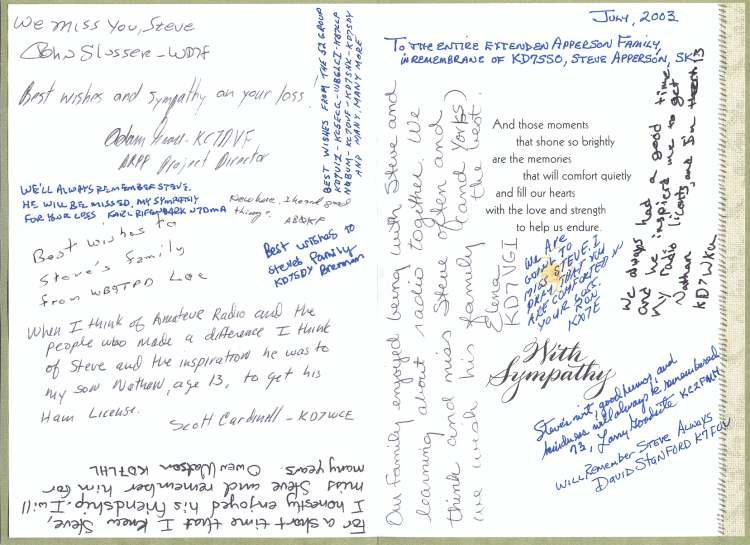 We miss You, Steve
John Slusser - WD7F
Best wishes and sympathy on your loss.
Adam KC7DVF
ARPP Project Director
WE'LL ALWAYS REMEMBER STEVE.
HE WILL BE MISSED. MY SYMPATHY
FOR YOUR LOSS KARL RIFENBARK N7DMA
New here, I heard good
things.
Best wishes to
Steve's Family
from WB9TPD Lee
Best wishes to
Steves Family
KD7SDY Brennan
BEST WISHES FROM THE S2 GROUP
AND MANY, MANY MORE
When I think of Amateur Radio and the
people who made a difference I think
of Steve and the inspiration he was to
my son Nathan, age 13, to get his
Ham License.
Scott Cardwell - KD7WCE
For a short time that I knew Steve,
I honestly enjoyed his friendship. I will
miss Steve and remember him for
many years. Owen Watson KD7LHL
JULY, 2003
TO THE ENTIRE EXTENDEN APPERSON FAMILY,
IN REMEMBRANE OF KD7SSO, STEVE APPERSON, SK
Our family enjoyed being with Steve and
learning about radio together. We
think and miss Steve often and
we wish his family (and Yorks)
the best.
Elena
KD7VGI
And those moments
that shone so brightly
are the memories
that will comfort quietly
and fill our hearts
with the love and strength
to help us endure.
We always had a good time
and he inspired me to get
my radio licents, and I'm 13
Nathan
KD7WKA
WE ARE
GOING TO
MISS STEVE. I
PRAY THAT YOU
ARE COMFORTED IN
YOUR LOSS.
RON
With
Sympathy
Steve's wit, good humor, and
kindness will always be remembered
73, Larry Goodrite KC2FMM
WILL REMEMBER STEVE ALWAYS
DAVID STANFORD K7FCV